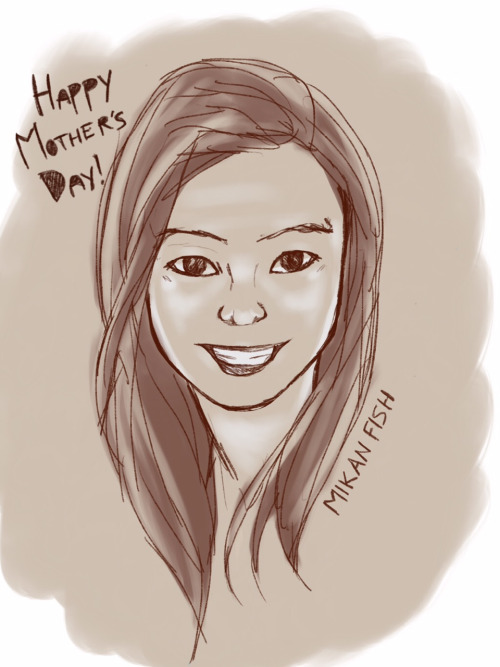 HAPPY
MOTHER'S
DAY!
MIKAN FISH